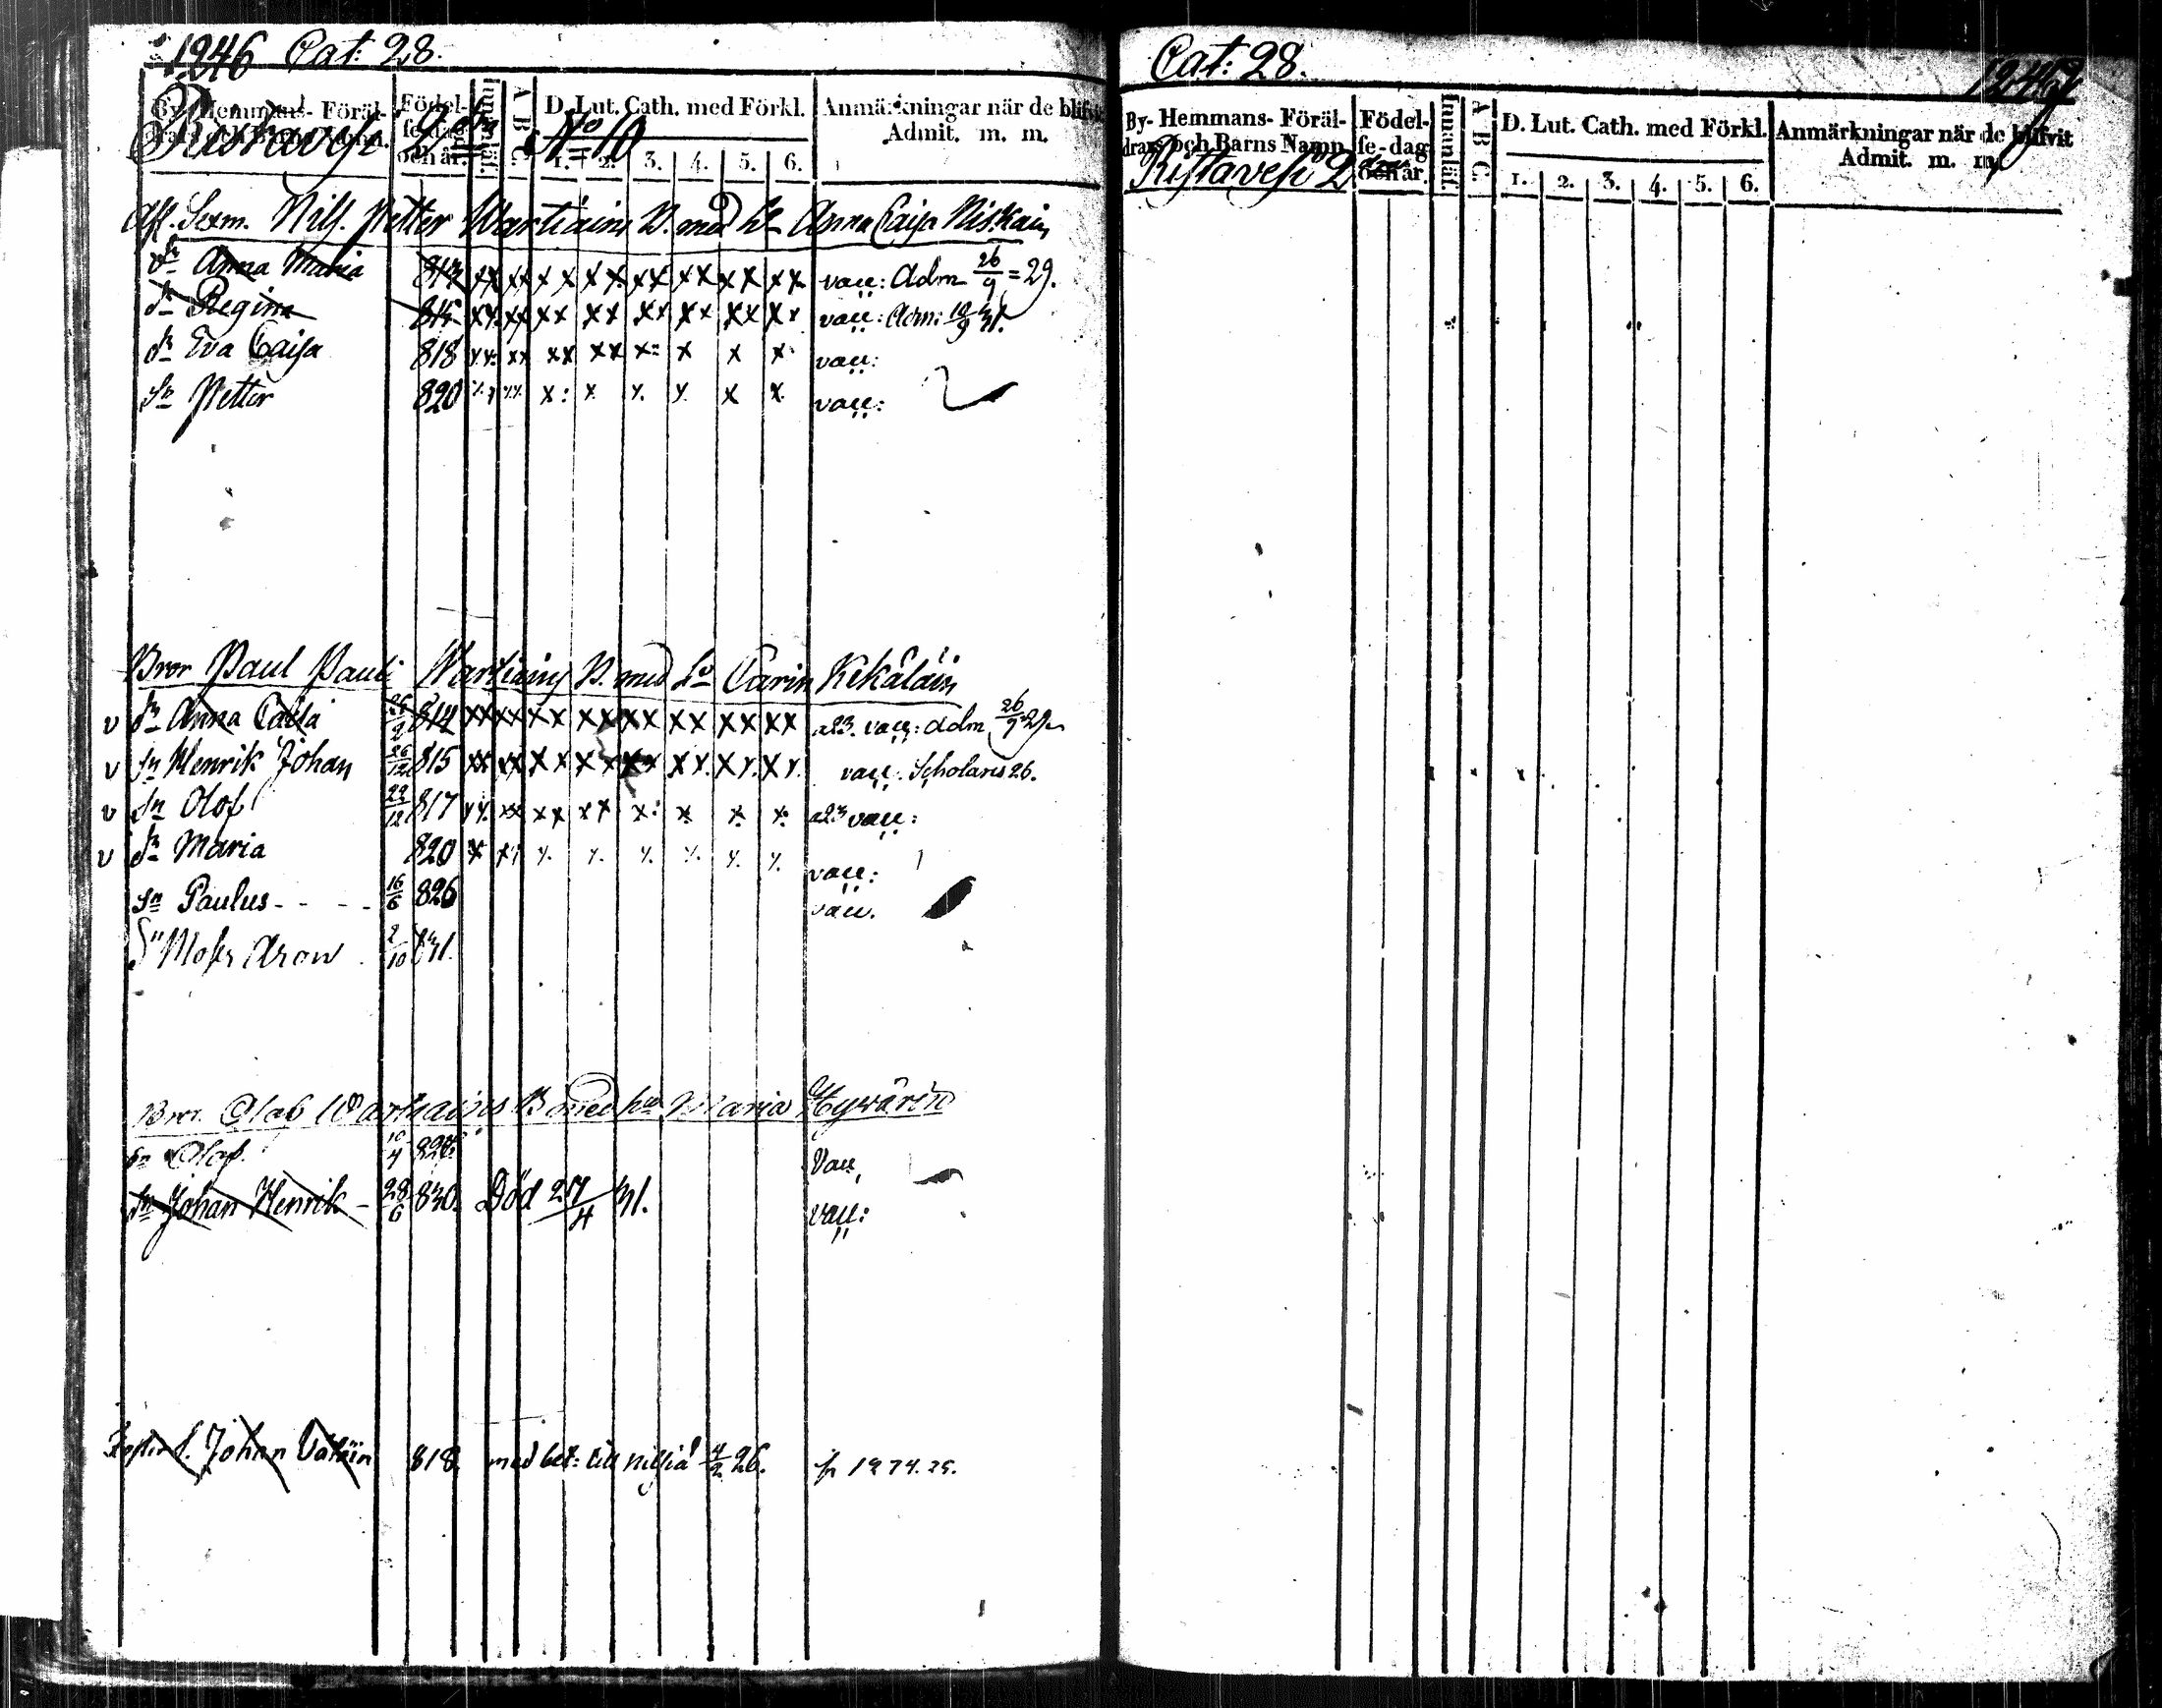 1246 Cat: 28.
By- Hemmans- Föräl-
Födel-
fe-dag
och år.
Innanläf.
A B C.
D. Lut. Cath. med Förkl.
1. 2. 3. 4. 5. 6.
Anmärkningar när de blifvit
Admit. m. m.
Ristavesi 2 No 10
Afl. Sexm. Nils Petter Wartiains B. med H. Anna Caisa Niskain
dr Anna Maria 813 xx xx x x x x xx xx xx xx vacc: Adm 26/9 = 29.
dr Regina 815 xx xx xx xx xx xx xx xx vacc: Adm: 18/9 31.
dr Eva Caisa 818 xx xx xx xx x: x x x vacc:
Sn Petter 820 x: x x x x x vacc:
Bror Paul Pauls. Wartiains B. med H. Carin Kekäläin
v dr Anna Caisa 814 xx xx xx xx xx xx xx xx a23. vacc: Adm 26/9 29
v Sn Henrik Johan 26/12 815 xx xx xx xx xx xx xx xx vacc. Scholaris 26.
v Sn Olof 22/12 817 xx xx xx xx x: x x x a23 vacc:
v dr Maria 820 x x x x x x x x vacc:
Sn Paulus - - - - 16/6 826 vacc.
Sn Moses Aron 2/10 831.
Bror Olof Wartiains B med hu Maria Hyvärin
Sn Olof Vacc,
Sn Johan Henrik - 28/6 830. Död 27/4 31. vacc:
Johan Vätäin 818. med bet: till Nilsiä 4/2 26.
Cat: 28.
1246
By- Hemmans- Föräl-
drars och Barns Namn.
Födel-
fe-dag
och år.
Innanläf.
A B C.
D. Lut. Cath. med Förkl.
1. 2. 3. 4. 5. 6.
Anmärkningar när de blifvit
Admit. m. m.
Ristavesi 2